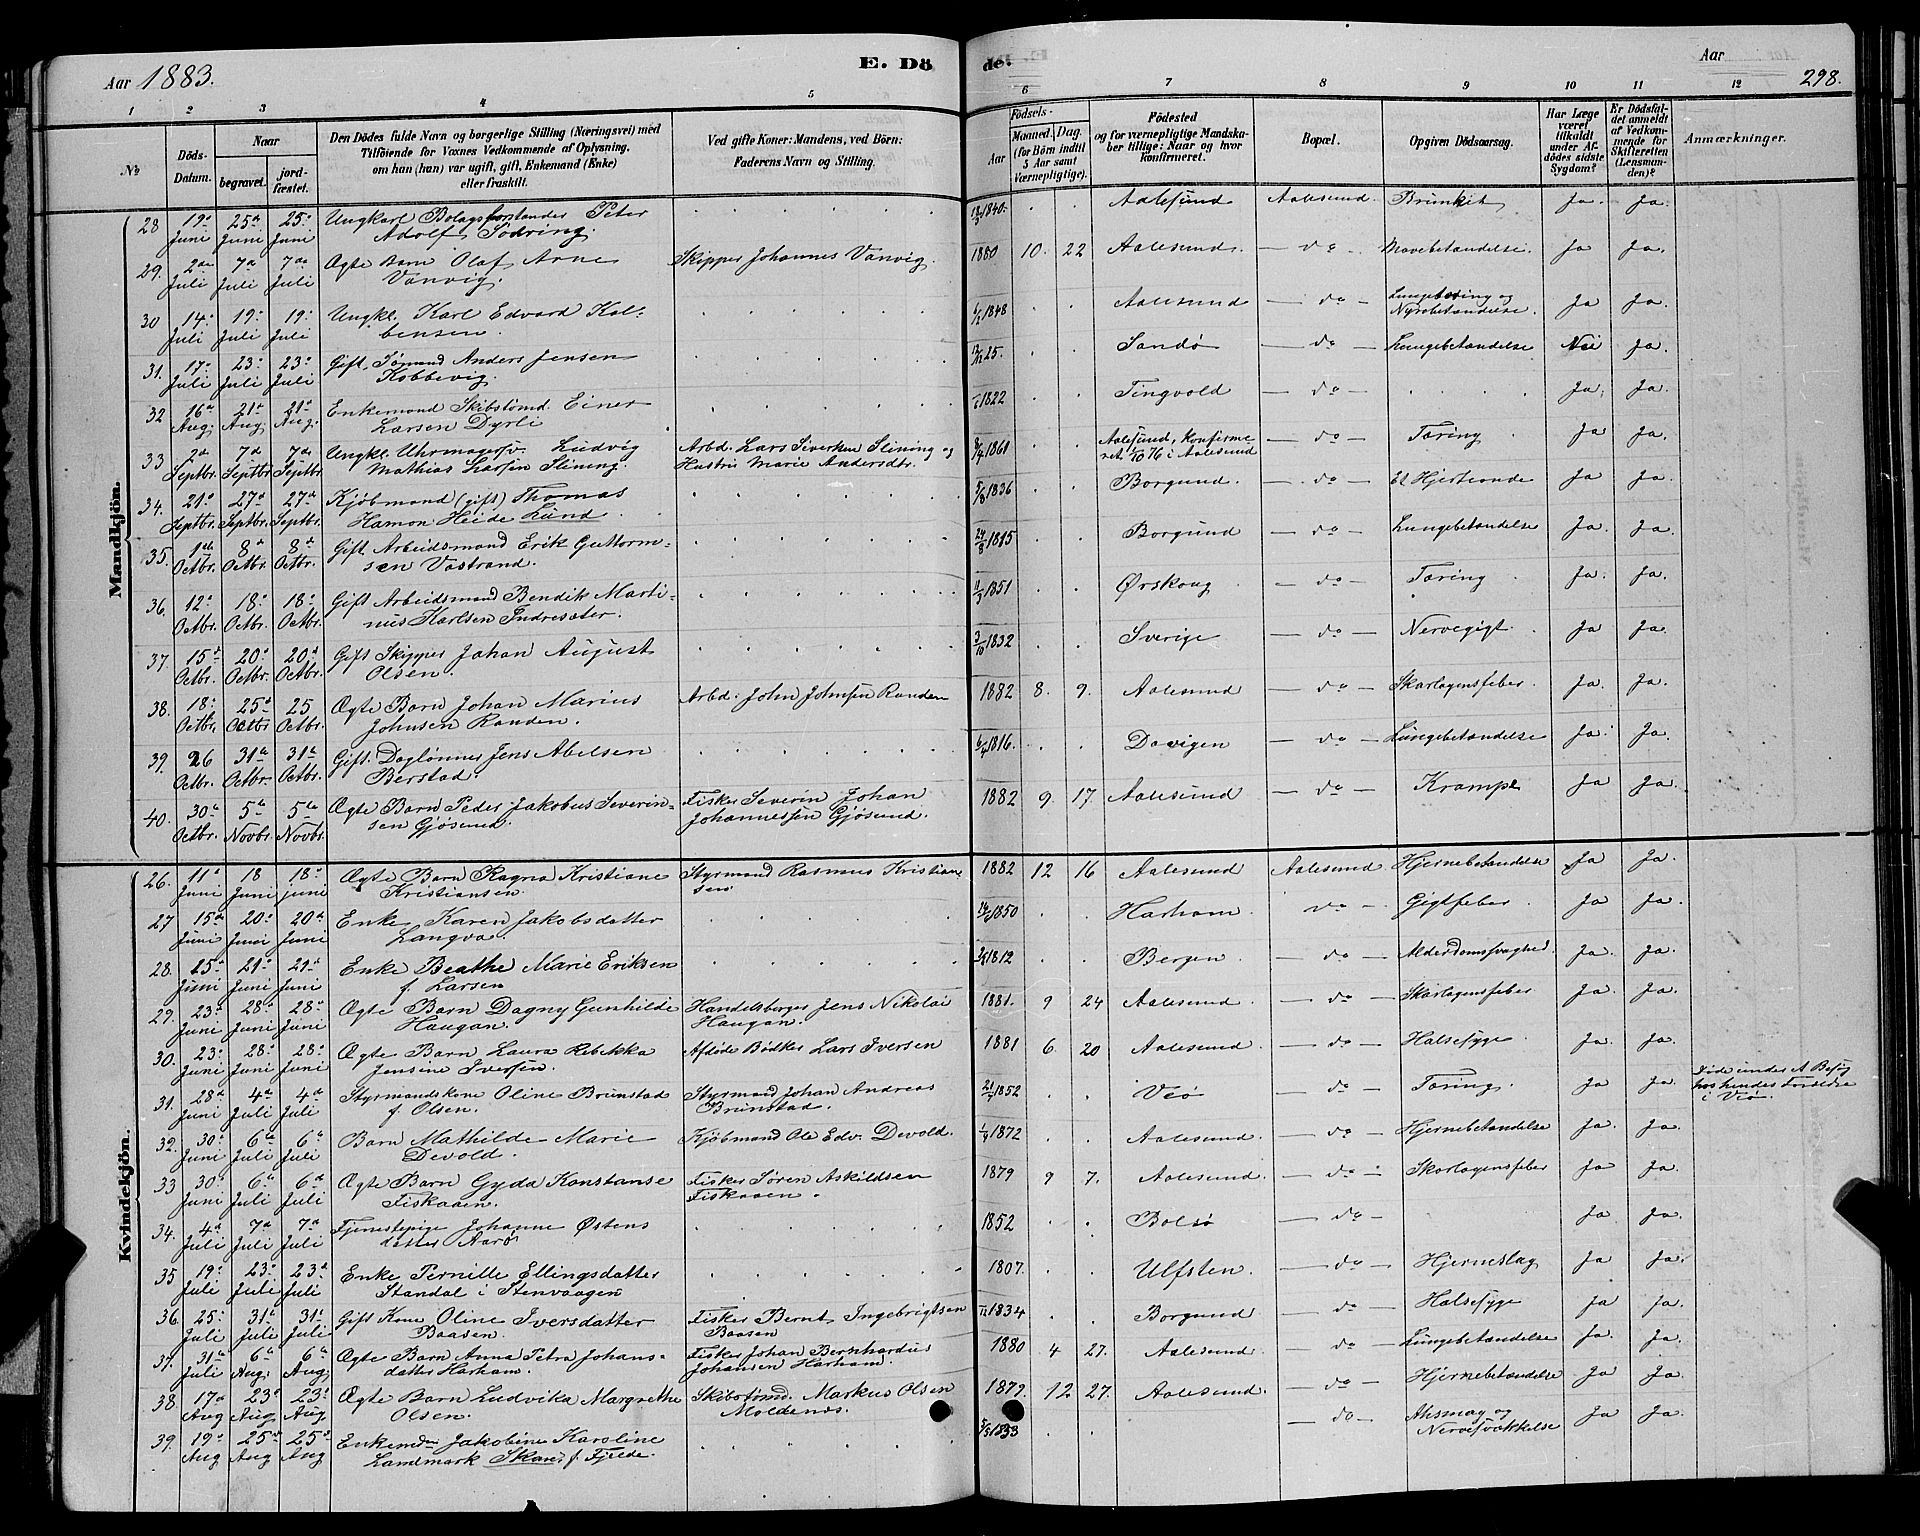 Aar 1883.
E. Dö
de.
Aar
298.
1 2 3 4 5 6 7 8 9 10 11 12
No
Döds-Datum.
Naar
begravet.
jord-fæstet.
Den Dödes fulde Navn og borgerlige Stilling (Næringsvei) med
Tilföiende for Voxnes Vedkommende af Oplysning.
om han (hun) var ugift, gift, Enkemand (Enke)
eller fraskilt.
Ved gifte Koner: Mandens, ved Börn:
Faderens Navn og Stilling.
Födsels-
Aar
Maaned. Dag.
(for Börn indtil
5 Aar samt
Værnepligtige).
Födested
og for værnepligtige Mandska-
ber tillige: Naar og hvor
konfirmeret.
Bopæl.
Opgiven Dödsaarsag.
Har Læge
været
tilkaldt
under Af-
dödes sidste
Sygdom?
Er Dödsfal-
det anmeldt
af Vedkom-
mende for
Skifteretten
(Lensman-
den)?
Anmærkninger.
Mandkjön.
28 19de Juni 25de Juni 25de Juni Ungkarl Bolagsforstander Peter Adolf Södring. 1840. Aalesund Aalesund Ja. Ja.
29. 2den Juli 7de Juli 7de Juli Ægte Barn Olaf Arne Vanvig. Skipper Johannes Vanvig. 1880 10. 22 Aalesund. do Mavebetændelse. Ja Ja.
30 14de Juli 19de Juli 19de Juli Ungkl. Karl Edvard Kolbensen. 6/2 1848 Aalesund do Lungetæring og Nyrebetændelse. Ja Ja
31. 17de Juli 23de Juli 23de Juli Gift Sömand Anders Jensen Kobbevig. 25. Sandö do Lungebetændelse Nei Ja.
32 16de Aug. 21de Aug 21de Aug. Enkemand Skibstömd. Einer Larsen Dyrli 1822 Tingvold do Ja. Ja.
33 2den Septbr. 7de Septbr 7de Septbr. Ungkl. Uhrmagersv. Ludvig Mathias Larsen Slining. Arbd. Lars Siversen Slining og Hustru Marie Andersdtr. 1861 Aalesund, Konfirmeret i Aalesund do Tæring Ja Ja.
34. 21de Septbr. 27de Septbr. 27de Septbr. Kjöbmand (gift) Thomas Hamon Heide Lund. 5/8 1836 Borgund do Et Hjerteonde Ja Ja.
35. 1ste Octbr. 8de Octbr. 8de Octbr. Gift Arbeidsmand Erik Guttormsen Vastrand. 24/8 1815 Borgund do Lungebetændelse Ja. Ja.
36. 12te Octbr. 18de Octbr. 18de Octbr. Gift Arbeidsmand Bendik Martinus Karlsen Indresæter. 11/3 1851 Ørskoug do Tæring Ja. Ja.
37. 15de Octbr. 20de Octbr. 20de Octbr. Gift Skipper Johan August Olsen. 3/10 1832 Sverige do Nervegigt Ja Ja.
38. 18de Octbr. 25de Octbr 25 Octbr. Ægte Barn Johan Marius Johnsen Randen. Arbd. John Johnsen Randen 1882 8. 9. Aalesund do Skarlagensfeber. Ja. Ja.
39. 26 Octbr. 31te Octbr. 31te Octbr. Gift Daglönner Jens Abelsen Berstad. 6/4 1816. Davigen do Lungebetændelse Ja. Ja.
40. 30te Octbr. 5te Novbr. 5te Novbr. Ægte Barn Peder Jakobus Severinsen Gjösund. Fisker Severin Johan Johannessen Gjösund. 1882 9. 17. Aalesund do Krampe Ja Ja.
Kvindekjön.
26. 11te Juni 18 Juni 18de juni Ægte Barn Ragna Kristiane Kristiansen. Styrmand Rasmus Kristiansen 1882 12 16 Aalesund Aalesund Hjernebetændelse Ja Ja.
27 15de Juni 20de Juni 20de Juni Enke Karen Jakobsdatter Langva. 1850 Harham do Gigtfeber. Ja Ja.
28. 15de Juni 21de Juni 21de Juni Enke Beathe Marie Eriksen f. Larsen 1812 Bergen do Alderdomssvaghed. Ja Ja.
29. 23de Juni 28de Juni 28de Juni Ægte Barn Dagny Gunhilde Haugan. Handelsborger Jens Nikolai Haugan. 1881. 9 24 Aalesund do Skarlagensfeber Ja. Ja.
30. 23de Juni 28de Juni 28de Juni Ægte Barn Laura Rebekka Jensine Iversen. Afdöde Bödker Lars Iversen 1881 6. 20 Aalesund. do Halsesyge. Ja. Ja.
31. 28de Juni 4de Juli 4de Juli Styrmandskone Oline Brunstad f. Olsen. Styrmand Johan Andreas Brunstad. 1852 Veö do Tæring. Ja Ja Döde under et Besög hos hendes Forældre i Veö.
32. 30te Juni 6te Juli 6te Juli Barn Mathilde Marie Devold. Kjöbmand Ole Edv. Devold. 1/9 1872 Aalesund. do Hjernebetændelse Ja. Ja.
33 30te Juni 6te Juli 6te Juli Ægte Barn Gyda Konstanse Fiskaaen. Fisker Sören Askildsen Fiskaaen. 1879 9 7. Aalesund. do Skarlagensfeber Ja Ja.
34. 4de Juli 7de Juli 7de Juli Tjenestepige Johanne Østensdatter Aarö 1852 Bolsö do Ja. Ja.
35 19de Juli 23de Juli 23de Juli Enke Pernille Ellingsdatter Standal i Stenvaagen 1807. Ulfsten. do Hjerneslag Ja Ja.
36. 25de Juli 31te Juli 31te Juli Gift Kone Oline Iversdatter Baasen. Fisker Bernt Ingebrigtsen Baasen 1834 Borgund do Halsesyge Ja Ja.
37. 31te Juli 6te Aug. 6te Aug. Ægte Barn Anna Petra Johansdatter Harham. Fisker Johan Bernhardus Johansen Harham. 1880 4 27. Aalesund do Lungebetændelse Ja. Ja.
38 17de Aug 23de Aug 23de Aug Ægte Barn Ludvika Margrethe Olsen. Skibstömd. Markus Olsen Moldenæs. 1879. 12 27. Aalesund. do Hjernebetændelse Ja Ja.
39. 19de Aug 25de Aug 25de Aug Jakobine Karoline Landmark Skare f. Fjelde 5/5 1833 do og Nervesvækkelse Ja Ja.